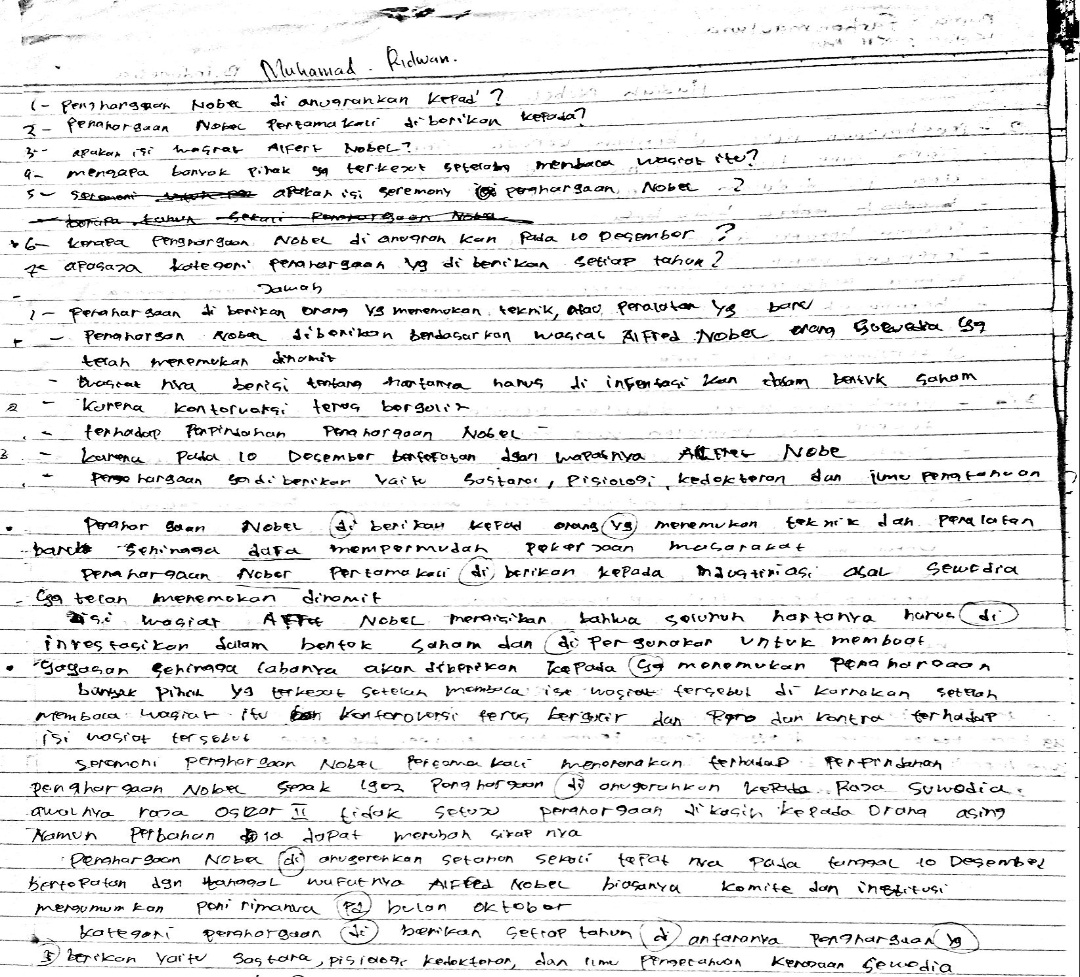 Muhamad Ridwan.
1- penghargaan Nobel di anugrahkan kepad ?
2- penghargaan Nobel Pertama kali di berikan kepada?
3- apakah isi wasiat Alfert Nobel?
4- mengapa banyak pihak yg terkejut setelah membaca wasiat itu?
5- apakah isi seremony penghargaan Nobel ?
6- kenapa penghargaan Nobel di anugrah kan pada 10 Desember ?
7- apasaja kategori penghargaan yg di berikan setiap tahun?
Jawab
1- penghargaan di berikan orang yg menemukan teknik, atau peralatan yg baru
- Penghargan Nobel diberikan berdasarkan wasiat Alfred Nobel orang Suwedia yg
telah menemukan dinamit
- wasiat nya berisi tentang hartanya harus di infestasi kan dalam bentuk saham
- karena kontorvarsi terus bergulir
- terhadap Perpindahan Penghargaan Nobel
- karena pada 10 Desember bertepatan dgn wapatnya Nobe
- hargaan yg diberikan yaitu Sastara, Pisiologi, kedokteran dan ilmu pengtahuan
Penghar gaan Nobel di berikan kepad orang yg menemukan teknik dan peralatan
baru sehingga dapa mempermudah pekerjaan masarakat
penghargaan Nobel Pertama kali di berikan kepada industriasi asal Sewedia
yg telah menemukan dinamit
isi wasiat Nobel mengisikan bahwa seluruh hartanya harus di
investasikan dalam bentuk saham dan di pergunakan untuk membuat
gagasan sehingga labanya akan diberikan kepada yg menemukan Pengharagaan
banyak pihak yg terkejut setelah membaca isi wasiat tersebut di karnakan setelah
membaca wasiat itu kontoroversi terus bergulir dan Pro dan kontra terhadap
isi wasiat tersebut
seremoni penghargaan Nobel pertama kali menerangkan terhadap Perpindahan
penghargaan Nobel sejak 1902 Penghargaan di anugrahkan kepada Raja Suwedia.
awalnya raja Oskar II tidak setuju penghargaan di kasih kepada Orang asing
Namun Perbahan dapat merubah sikap nya
Penghargaan Nobel di anugerahkan setahun sekali tepat nya pada tanggal 10 Desember
bertepatan dgn tanggal wafatnya Alfred Nobel biasanya komite dan institusi
mengumum kan penirimanya pd bulan Oktober
kategori penghargaan di berikan setiap tahun di antaranya penghargaan yg
di berikan yaitu Sastara, pisiologi kedokteran, dan ilmu pengetahuan Kerajaan Sewedia